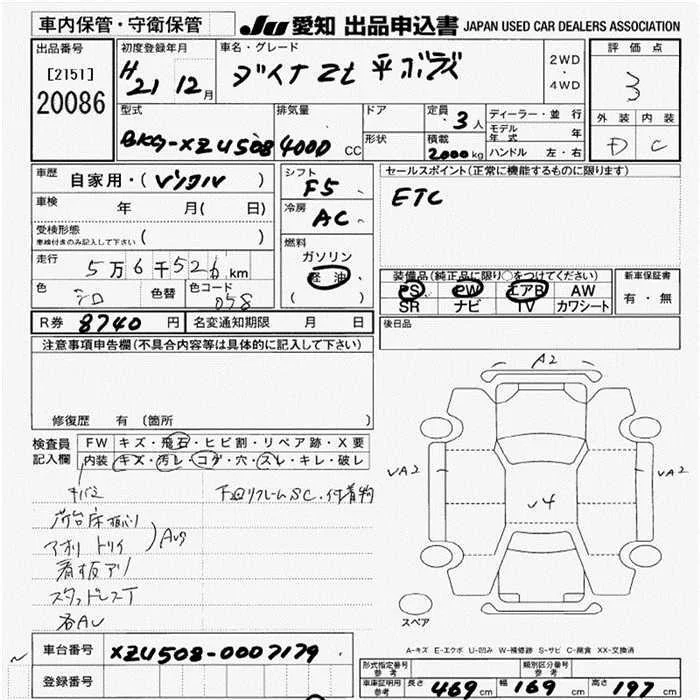 車内保管・守衛保管
JU 愛知 出品申込書 JAPAN USED CAR DEALERS ASSOCIATION
出品番号
[2151]
20086
初度登録年月
H21 12月
車名・グレード
ダイナ 2t 平ボディ
2WD
・
4WD
評価点
3
外装 内装
D C
型式
BKG-XZU508
排気量
4000 CC
ドア
形状
定員
・3人
積載
2000kg
ディーラー・並行
モデル年式 年
ハンドル 左・右
車歴
自家用・(レンタル)
車検
年 月( 日)
受検形態
車検付きのみ記入して下さい ( )
走行
5万6千526km
色
シロ
色替
色コード
058
シフト
F5
冷房
AC
燃料
ガソリン
軽油
( )
セールスポイント(正常に機能するものに限ります)
ETC
装備品(純正品に限り○をつけてください)
PS PW エアB AW
SR ナビ TV カワシート
新車保証書
有・無
後日品
R券 8740円
名変通知期限 月 日
注意事項申告欄(不具合内容等は具体的に記入して下さい)
修復歴 有 〔箇所 〕
検査員記入欄
FW キズ・飛石・ヒビ割・リペア跡・X要
内装 キズ・汚レ・コゲ・穴・スレ・キレ・破レ
キバミ
下回りフレームSC・付着物
荷台床板ハリ
アオリ トリイ
Avg
看板アリ
スタッドレスT
各AU
A2
VA2
VA2
U4
スペア
A-キズ E-エクボ U-凹み W-補修跡 S-サビ C-腐食 XX-交換済
車台番号
XZU508-0007179
登録番号
形式指定番号
参考
類別区分番号
参考
車庫証明用
参考
長さ 469 cm
幅 169 cm
高さ 197 cm